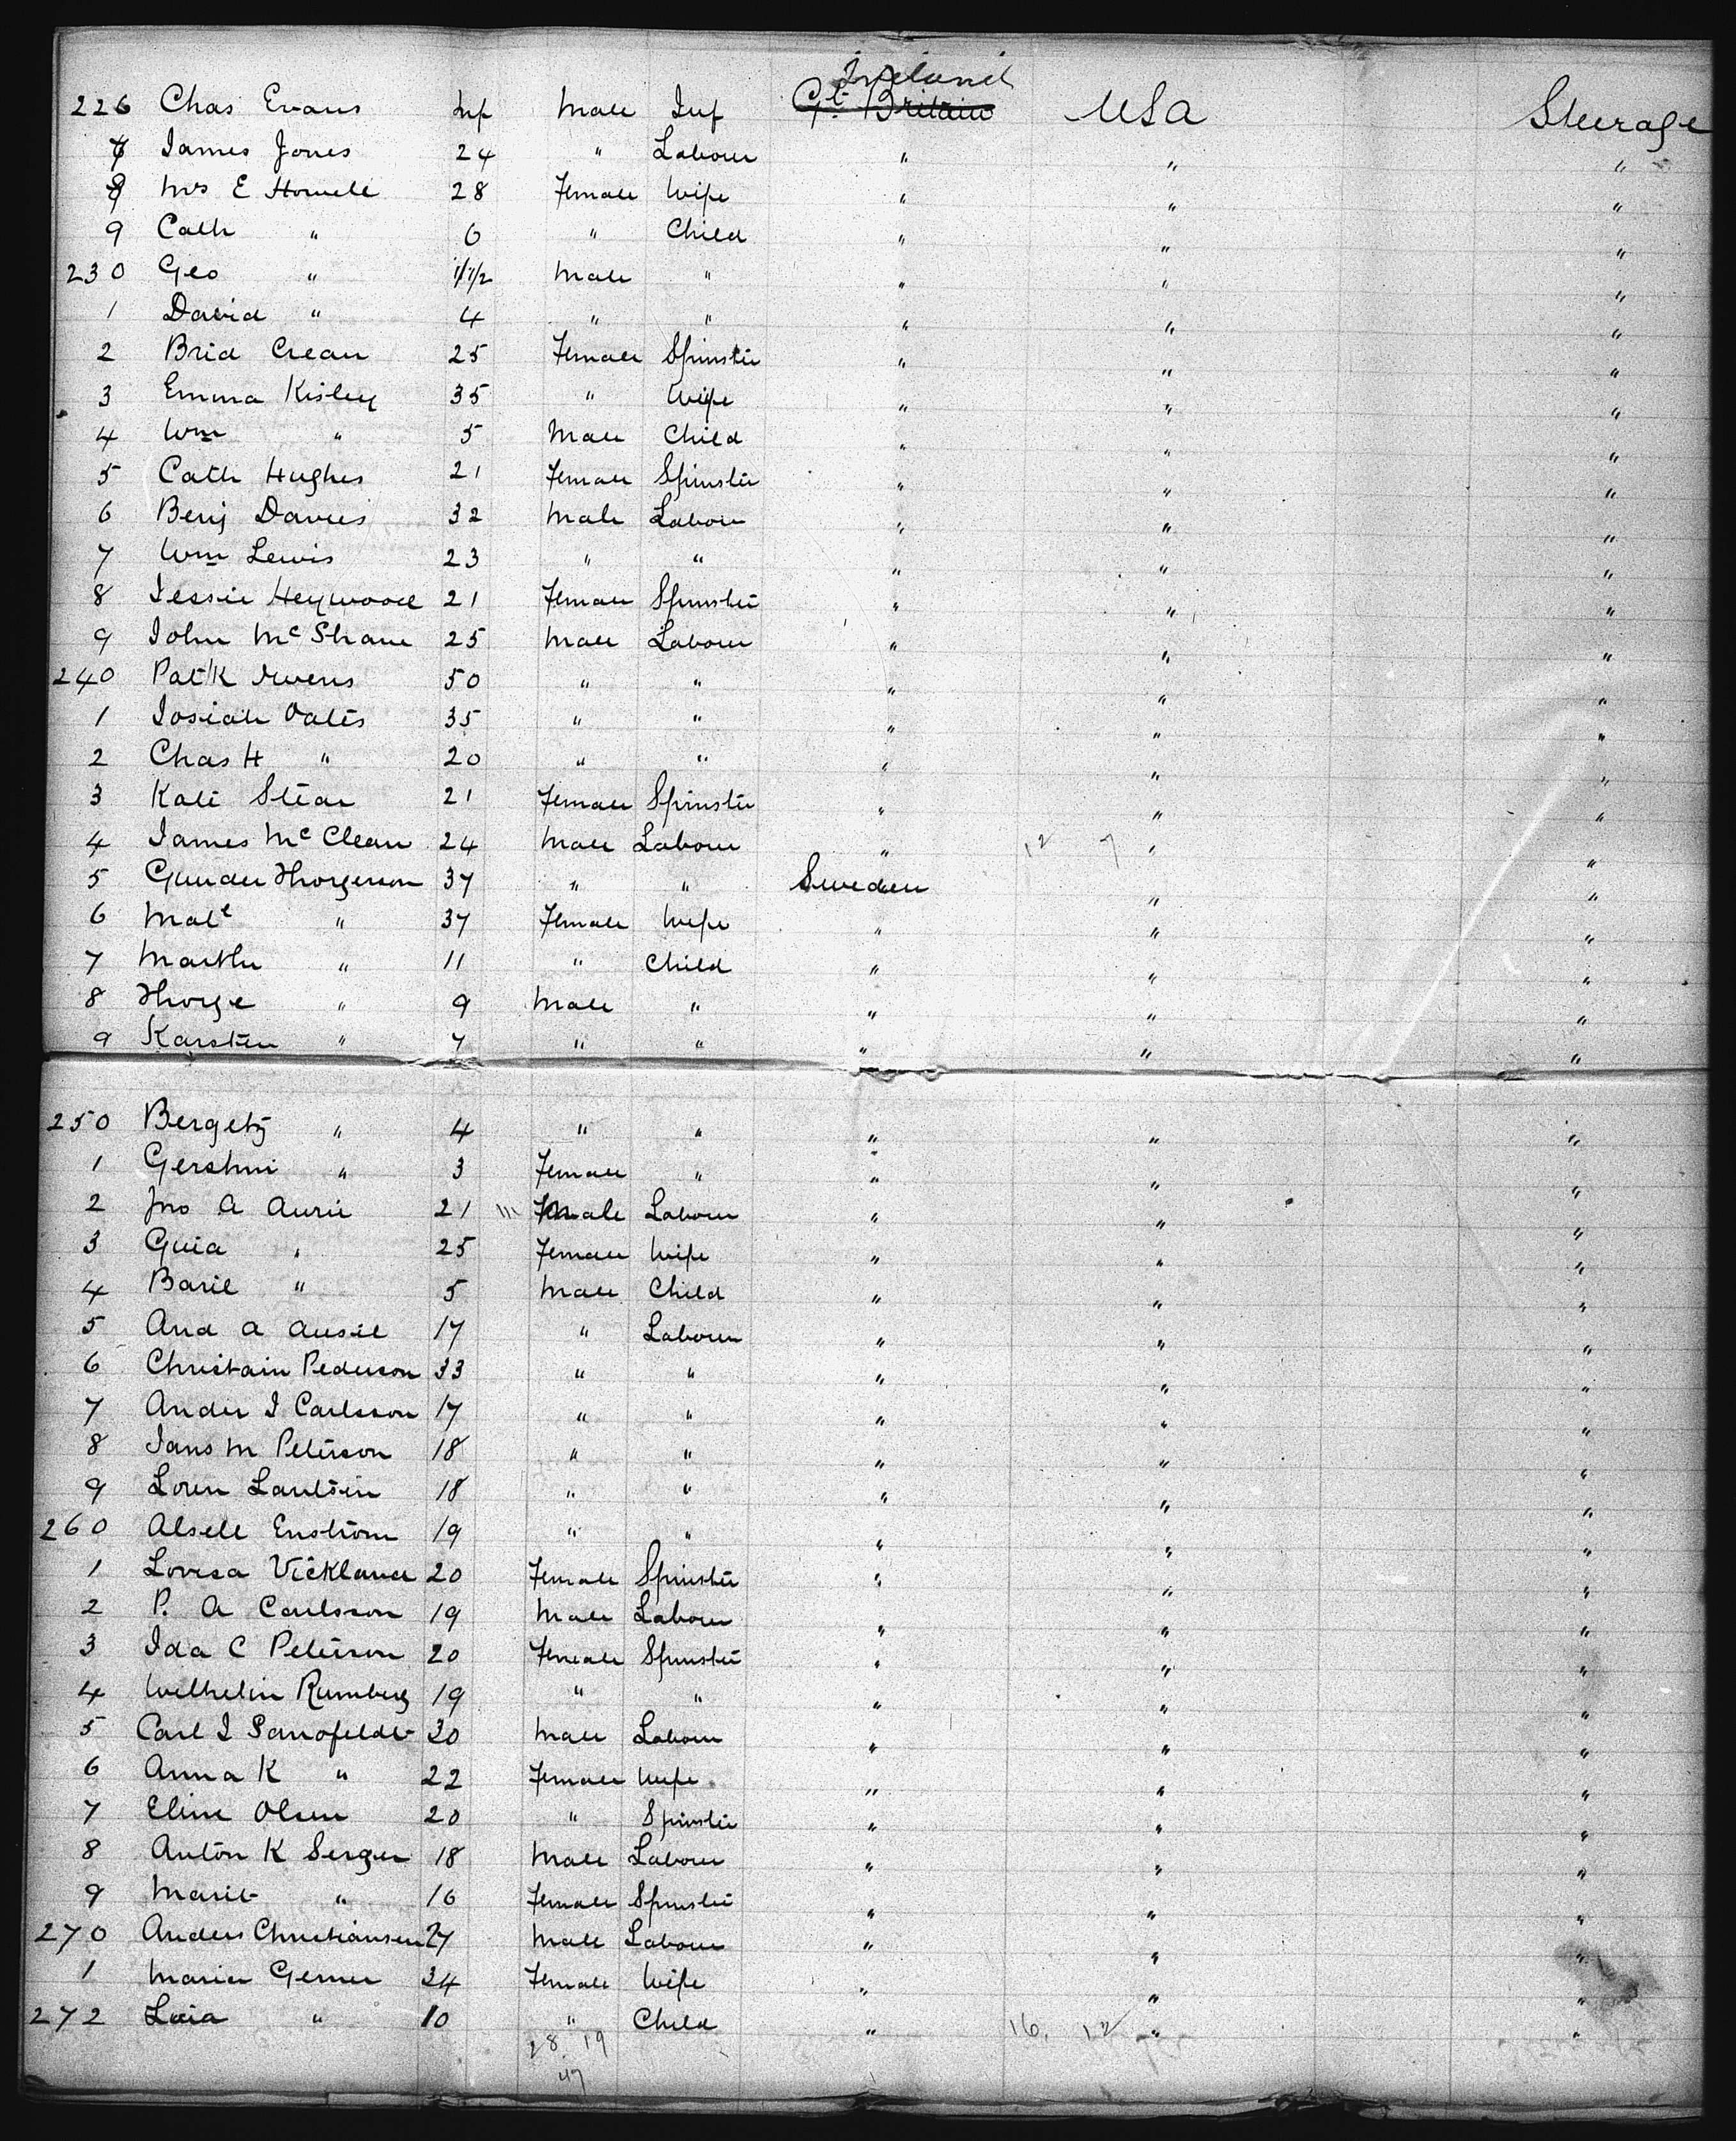 Ireland
226 Chas Evans Inf Male Inf Gt. Britain USA Steerage
7 James Jones 24 " Labour " " "
8 Mrs E Howell 28 Female Wife " " "
9 Cath " 6 " Child " " "
230 Geo " 1/1/2 Male " " " "
1 David " 4 " " " " "
2 Brid Crean 25 Female Spinster " " "
3 Emma Kisley 35 " Wife " " "
4 Wm " 5 Male Child " " "
5 Cath Hughes 21 Female Spinster " " "
6 Benj Davies 32 Male Labour " " "
7 Wm Lewis 23 " " " " "
8 Jessie Heywood 21 Female Spinster " " "
9 John McShane 25 Male Labour " " "
240 Patk 50 " " " " "
1 Josiah Oates 35 " " " " "
2 Chas H " 20 " " " " "
3 Kate Stear 21 Female Spinster " " "
4 James McClean 24 Male Labour " 12 7 " "
5 Gunder Thorgerson 37 " " Sweden " "
6 Mate " 37 Female Wife " " "
7 Marthe " 11 " Child " " "
8 Thorge " 9 Male " " " "
9 Karsten " 7 " " " " "
250 " 4 " " " " "
1 " 3 Female " " " "
2 Jno A Aurie 21 Male Labour " " "
3 Guia " 25 Female Wife " " "
4 " 5 Male Child " " "
5 And A Ausie 17 " Labour " " "
6 Christain Pederson 33 " " " " "
7 Ander J Carlsson 17 " " " " "
8 Jans M Peterson 18 " " " " "
9 Loren 18 " " " " "
260 Enstrom 19 " " " " "
1 Lovisa Vicklund 20 Female Spinster " " "
2 P. A Carlsson 19 Male Labour " " "
3 Ida C Peterson 20 Female Spinster " " "
4 Wilhelm Rumberg 19 " " " " "
5 Carl J 20 Male Labour " " "
6 Anna K " 22 Female Wife " " "
7 Eline Olsen 20 " Spinster " " "
8 Anton K 18 Male Labour " " "
9 Marit " 16 Female Spinster " " "
270 Anders Christiansen 27 Male Labour " " "
1 Maria Gerner 34 Female Wife " " "
272 " 10 " Child " 16. 12 " "
28 19
47